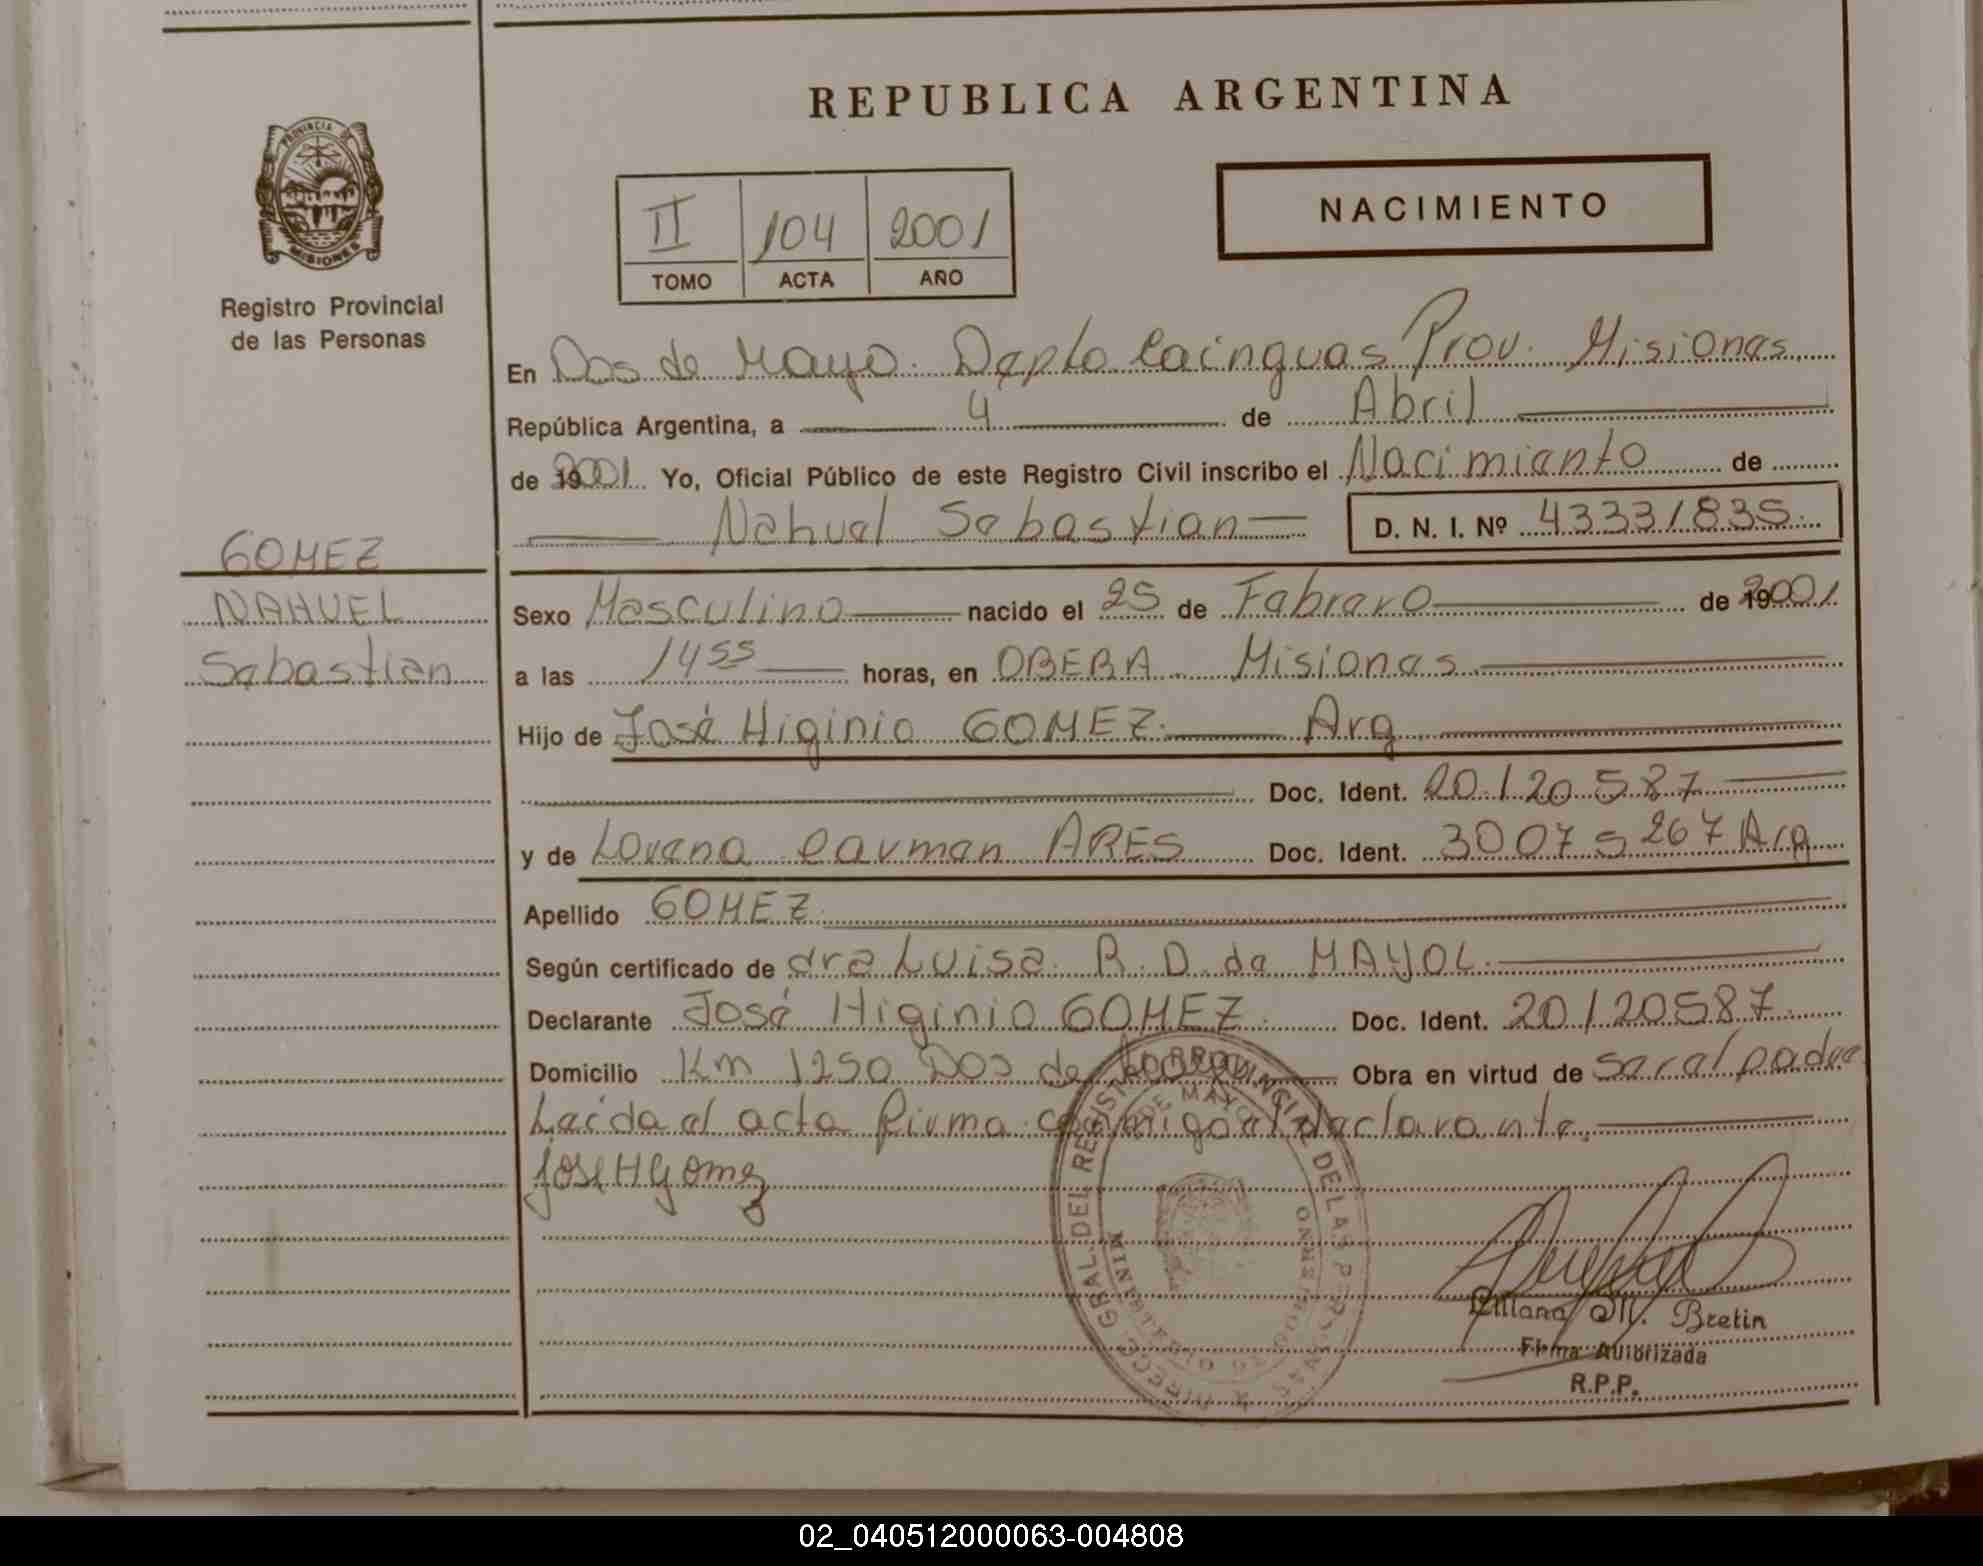 REPUBLICA ARGENTINA
PROVINCIA DE
MISIONES
Registro Provincial
de las Personas
II 104 2001
TOMO ACTA AÑO
NACIMIENTO
En Dos de Mayo. Depto Cainguas Prov. Misiones
República Argentina, a 4 de Abril
de 2001 Yo, Oficial Público de este Registro Civil inscribo el Nacimiento de
Nahuel Sebastian D. N. I. Nº 43331835
GOMEZ
NAHUEL
Sebastian
Sexo Masculino nacido el 25 de Febrero de 2001
a las 1455 horas, en OBERA Misiones
Hijo de José Higinio GOMEZ Arg
Doc. Ident. 20120587
y de Lorena Carmen ARES Doc. Ident. 30075267 Arg
Apellido GOMEZ
Según certificado de dra Luisa R. D. de MAYOL
Declarante José Higinio GOMEZ Doc. Ident. 20120587
Domicilio Km 1250 Dos de Mayo Obra en virtud de ser el padre
Leida el acta firma conmigo el declarante.
Jose H Gomez
DIRECC. GRAL. DEL REGISTRO PROVINCIAL DE LAS PERSONAS
DE MAYO
Liliana M. Bretin
Firma Autorizada
R.P.P.
02_040512000063-004808